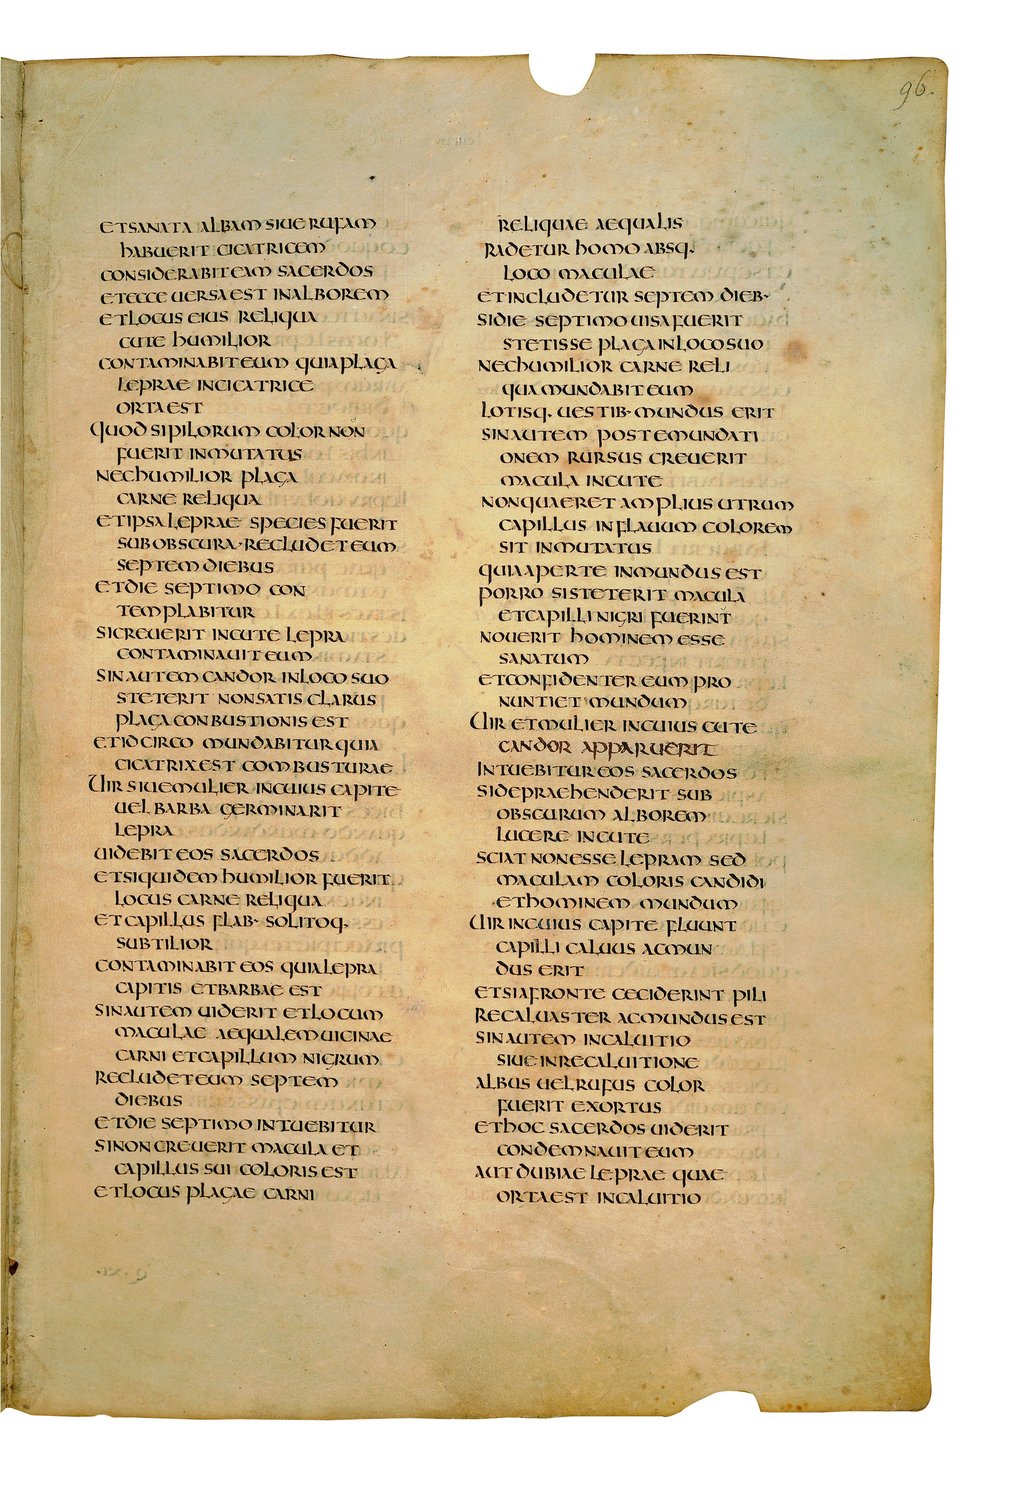 96.
ET SANATA ALBAM SIUE RUFAM
HABUERIT CICATRICEM
CONSIDERABIT EAM SACERDOS
ET ECCE UERSA EST IN ALBOREM
ET LOCUS EIUS RELIQUA
CUTE HUMILIOR
CONTAMINABIT EUM QUIA PLAGA
LEPRAE IN CICATRICE
ORTA EST
QUOD SI PILORUM COLOR NON
FUERIT INMUTATUS
NEC HUMILIOR PLAGA
CARNE RELIQUA
ET IPSA LEPRAE SPECIES FUERIT
SUBOBSCURA· RECLUDET EUM
SEPTEM DIEBUS
ET DIE SEPTIMO CON
TEMPLABITUR
SI CREUERIT IN CUTE LEPRA
CONTAMINAUIT EUM
SIN AUTEM CANDOR IN LOCO SUO
STETERIT NON SATIS CLARUS
PLAGA CONBUSTIONIS EST
ET IDCIRCO MUNDABITUR QUIA
CICATRIX EST COMBUSTURAE
UIR SIUE MULIER IN CUIUS CAPITE
UEL BARBA GERMINARIT
LEPRA
UIDEBIT EOS SACERDOS
ET SIQUIDEM HUMILIOR FUERIT
LOCUS CARNE RELIQUA
ET CAPILLUS FLAB· SOLITOQ·
SUBTILIOR
CONTAMINABIT EOS QUIA LEPRA
CAPITIS ET BARBAE EST
SIN AUTEM UIDERIT ET LOCUM
MACULAE AEQUALEM UICINAE
CARNI ET CAPILLUM NIGRUM
RECLUDET EUM SEPTEM
DIEBUS
ET DIE SEPTIMO INTUEBITUR
SI NON CREUERIT MACULA ET
CAPILLUS SUI COLORIS EST
ET LOCUS PLAGAE CARNI
RELIQUAE AEQUALIS
RADETUR HOMO ABSQ·
LOCO MACULAE
ET INCLUDETUR SEPTEM DIEB·
SI DIE SEPTIMO UISA FUERIT
STETISSE PLAGA IN LOCO SUO
NEC HUMILIOR CARNE RELI
QUA MUNDABIT EUM
LOTISQ· UESTIB· MUNDUS ERIT
SIN AUTEM POST EMUNDATI
ONEM RURSUS CREUERIT
MACULA IN CUTE
NON QUAERET AMPLIUS UTRUM
CAPILLUS IN FLAUUM COLOREM
SIT INMUTATUS
QUIA APERTE INMUNDUS EST
PORRO SI STETERIT MACULA
ET CAPILLI NIGRI FUERINT
NOUERIT HOMINEM ESSE
SANATUM
ET CONFIDENTER EUM PRO
NUNTIET MUNDUM
UIR ET MULIER IN CUIUS CUTE
CANDOR APPARUERIT
INTUEBITUR EOS SACERDOS
SI DEPRAEHENDERIT SUB
OBSCURUM ALBOREM
LUCERE IN CUTE
SCIAT NON ESSE LEPRAM SED
MACULAM COLORIS CANDIDI
ET HOMINEM MUNDUM
UIR IN CUIUS CAPITE FLUUNT
CAPILLI CALUUS AC MUN
DUS ERIT
ET SI A FRONTE CECIDERINT PILI
RECALUASTER AC MUNDUS EST
SIN AUTEM IN CALUITIO
SIUE IN RECALUITIONE
ALBUS UEL RUFUS COLOR
FUERIT EXORTUS
ET HOC SACERDOS UIDERIT
CONDEMNAUIT EUM
AUT DUBIAE LEPRAE QUAE
ORTA EST IN CALUITIO